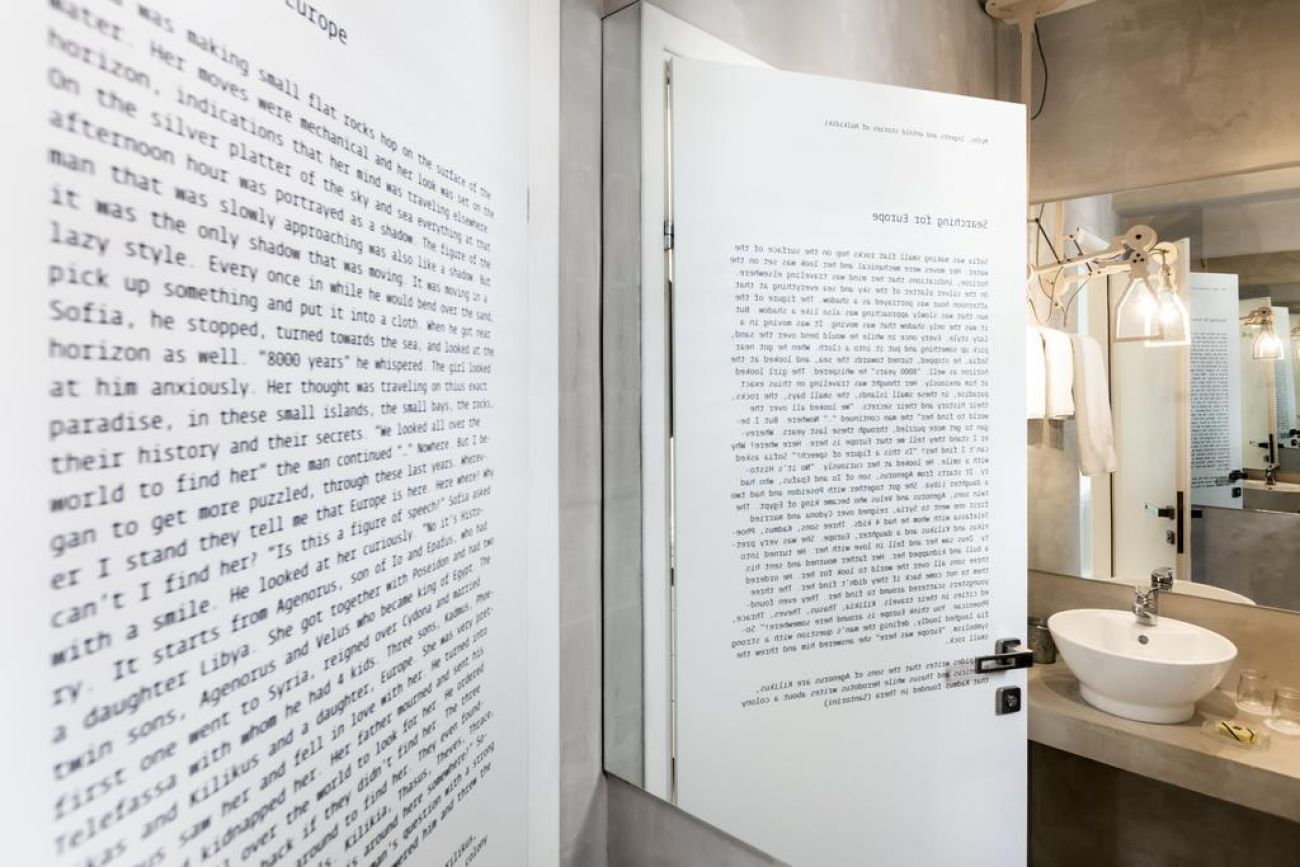 Europe
was making small flat rocks hop on the surface of the
water. Her moves were mechanical and her look was set on the
horizon, indications that her mind was traveling elsewhere.
On the silver platter of the sky and sea everything at that
afternoon hour was portrayed as a shadow. The figure of the
man that was slowly approaching was also like a shadow. But
it was the only shadow that was moving. It was moving in a
lazy style. Every once in while he would bend over the sand,
pick up something and put it into a cloth. When he got near
Sofia, he stopped, turned towards the sea, and looked at the
horizon as well. "8000 years" he whispered. The girl looked
at him anxiously. Her thought was traveling on thius exact
paradise, in these small islands, the small bays, the rocks,
their history and their secrets. "We looked all over the
world to find her" the man continued "." Nowhere. But I be-
gan to get more puzzled, through these last years. Wherev-
er I stand they tell me that Europe is here. Here where? Why
can't I find her? "Is this a figure of speech?" Sofia asked
with a smile. He looked at her curiously. "No it's Histo-
ry. It starts from Agenorus, son of Io and Epafus, who had
a daughter Libya. She got together with Poseidon and had two
twin sons, Agenorus and Velus who became king of Egypt. The
first one went to Syria, reigned over Cydona and married
Telefassa with whom he had 4 kids. Three sons, Kadmus, Phoe-
ikas and Kilikus and a daughter, Europe. She was very pret-
us saw her and fell in love with her. He turned into
kidnapped her. Her father mourned and sent his
all over the world to look for her. He ordered
back if they didn't find her. The three
around to find her. They even found-
Kilikia, Thasus, Theves, Thrace,
is around here somewhere?" So-
man's question with a strong
wered him and threw the
Kilikus,
colony
Myths, legents and untold stories of Halkidiki
Searching for Europe
Sofia was making small flat rocks hop on the surface of the
water. Her moves were mechanical and her look was set on the
horizon, indications that her mind was traveling elsewhere.
On the silver platter of the sky and sea everything at that
afternoon hour was portrayed as a shadow. The figure of the
man that was slowly approaching was also like a shadow. But
it was the only shadow that was moving. It was moving in a
lazy style. Every once in while he would bend over the sand,
pick up something and put it into a cloth. When he got near
Sofia, he stopped, turned towards the sea, and looked at the
horizon as well. "8000 years" he whispered. The girl looked
at him anxiously. Her thought was traveling on thius exact
paradise, in these small islands, the small bays, the rocks,
their history and their secrets. "We looked all over the
world to find her" the man continued "." Nowhere. But I be-
gan to get more puzzled, through these last years. Wherev-
er I stand they tell me that Europe is here. Here where? Why
can't I find her? "Is this a figure of speech?" Sofia asked
with a smile. He looked at her curiously. "No it's Histo-
ry. It starts from Agenorus, son of Io and Epafus, who had
a daughter Libya. She got together with Poseidon and had two
twin sons, Agenorus and Velus who became king of Egypt. The
first one went to Syria, reigned over Cydona and married
Telefassa with whom he had 4 kids. Three sons, Kadmus, Phoe-
nikas and Kilikus and a daughter, Europe. She was very pret-
ty. Zeus saw her and fell in love with her. He turned into
a bull and kidnapped her. Her father mourned and sent his
three sons all over the world to look for her. He ordered
them to not come back if they didn't find her. The three
youngsters scattered around to find her. They even found-
ed cities in their travels. Kilikia, Thasus, Theves, Thrace,
Phoenicae. You think Europe is around here somewhere?" So-
fia laughed loudly, defing the man's question with a strong
symbolism. "Europe was here" she answered him and threw the
small rock.
writes that the sons of Agenorus are Kilikus,
and Thasus while Herodotus writes about a colony
that Kadmus founded in Thera (Santorini)